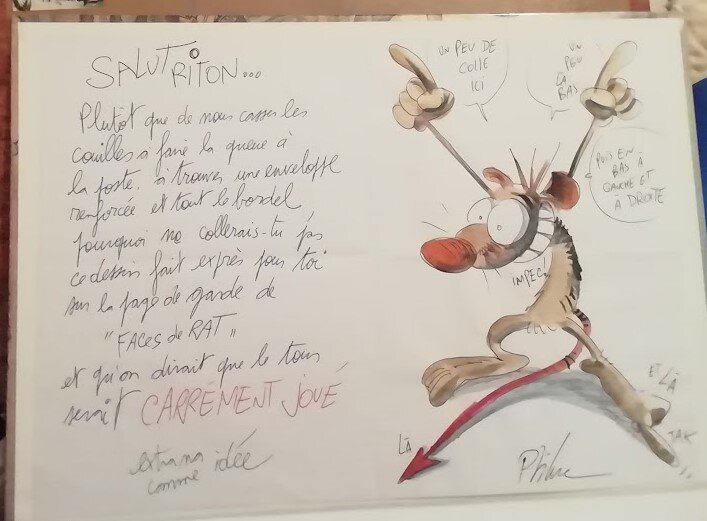 SALUT RITON...
Plutôt que de nous casser les
couilles à faire la queue à
la poste, à trouver une enveloppe
renforcée et tout le bordel
pourquoi ne collerais-tu pas
ce dessin fait exprès pour toi
sur la page de garde de
"FACES de RAT"
et qu'on dirait que le tour
serait CARRÉMENT JOUÉ
extra no idée
comme
UN PEU DE
COLLE
ICI
UN
PEU
LÀ
BAS
PUIS EN
BAS À
GAUCHE ET
À DROITE
IMPEC!
LÀ
ET LÀ
Ptiluc